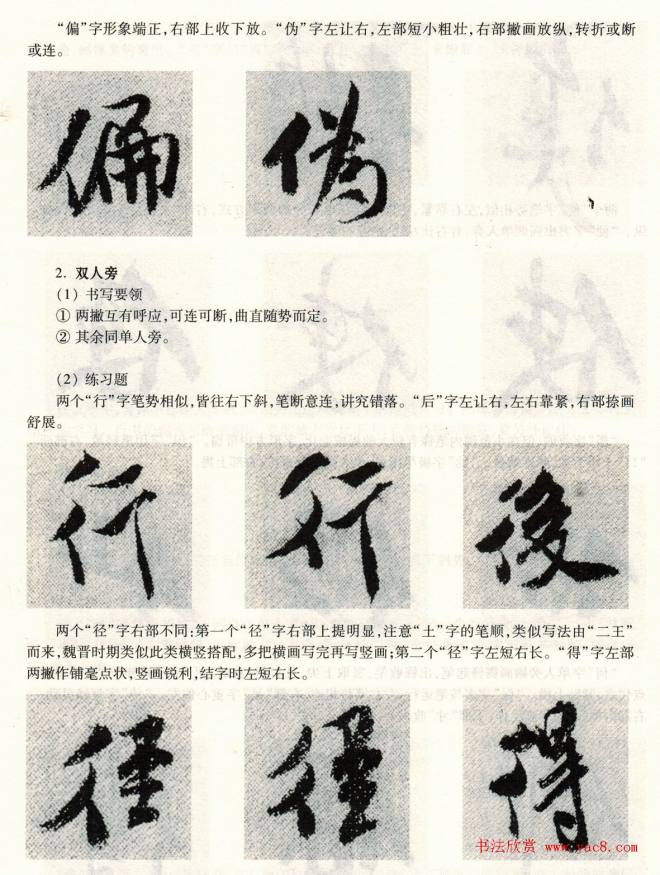 “偏”字形象端正，右部上收下放。“伪”字左让右，左部短小粗壮，右部撇画放纵，转折或断
或连。
偏 伪
2. 双人旁
(1) 书写要领
① 两撇互有呼应，可连可断，曲直随势而定。
② 其余同单人旁。
(2) 练习题
两个“行”字笔势相似，皆往右下斜，笔断意连，讲究错落。“后”字左让右，左右靠紧，右部捺画
舒展。
行 行 後
两个“径”字右部不同：第一个“径”字右部上提明显，注意“土”字的笔顺，类似写法由“二王”
而来，魏晋时期类似此类横竖搭配，多把横画写完再写竖画；第二个“径”字左短右长。“得”字左部
两撇作铺毫点状，竖画锐利，结字时左短右长。
径 径 得
书法欣赏 www.yac8.com